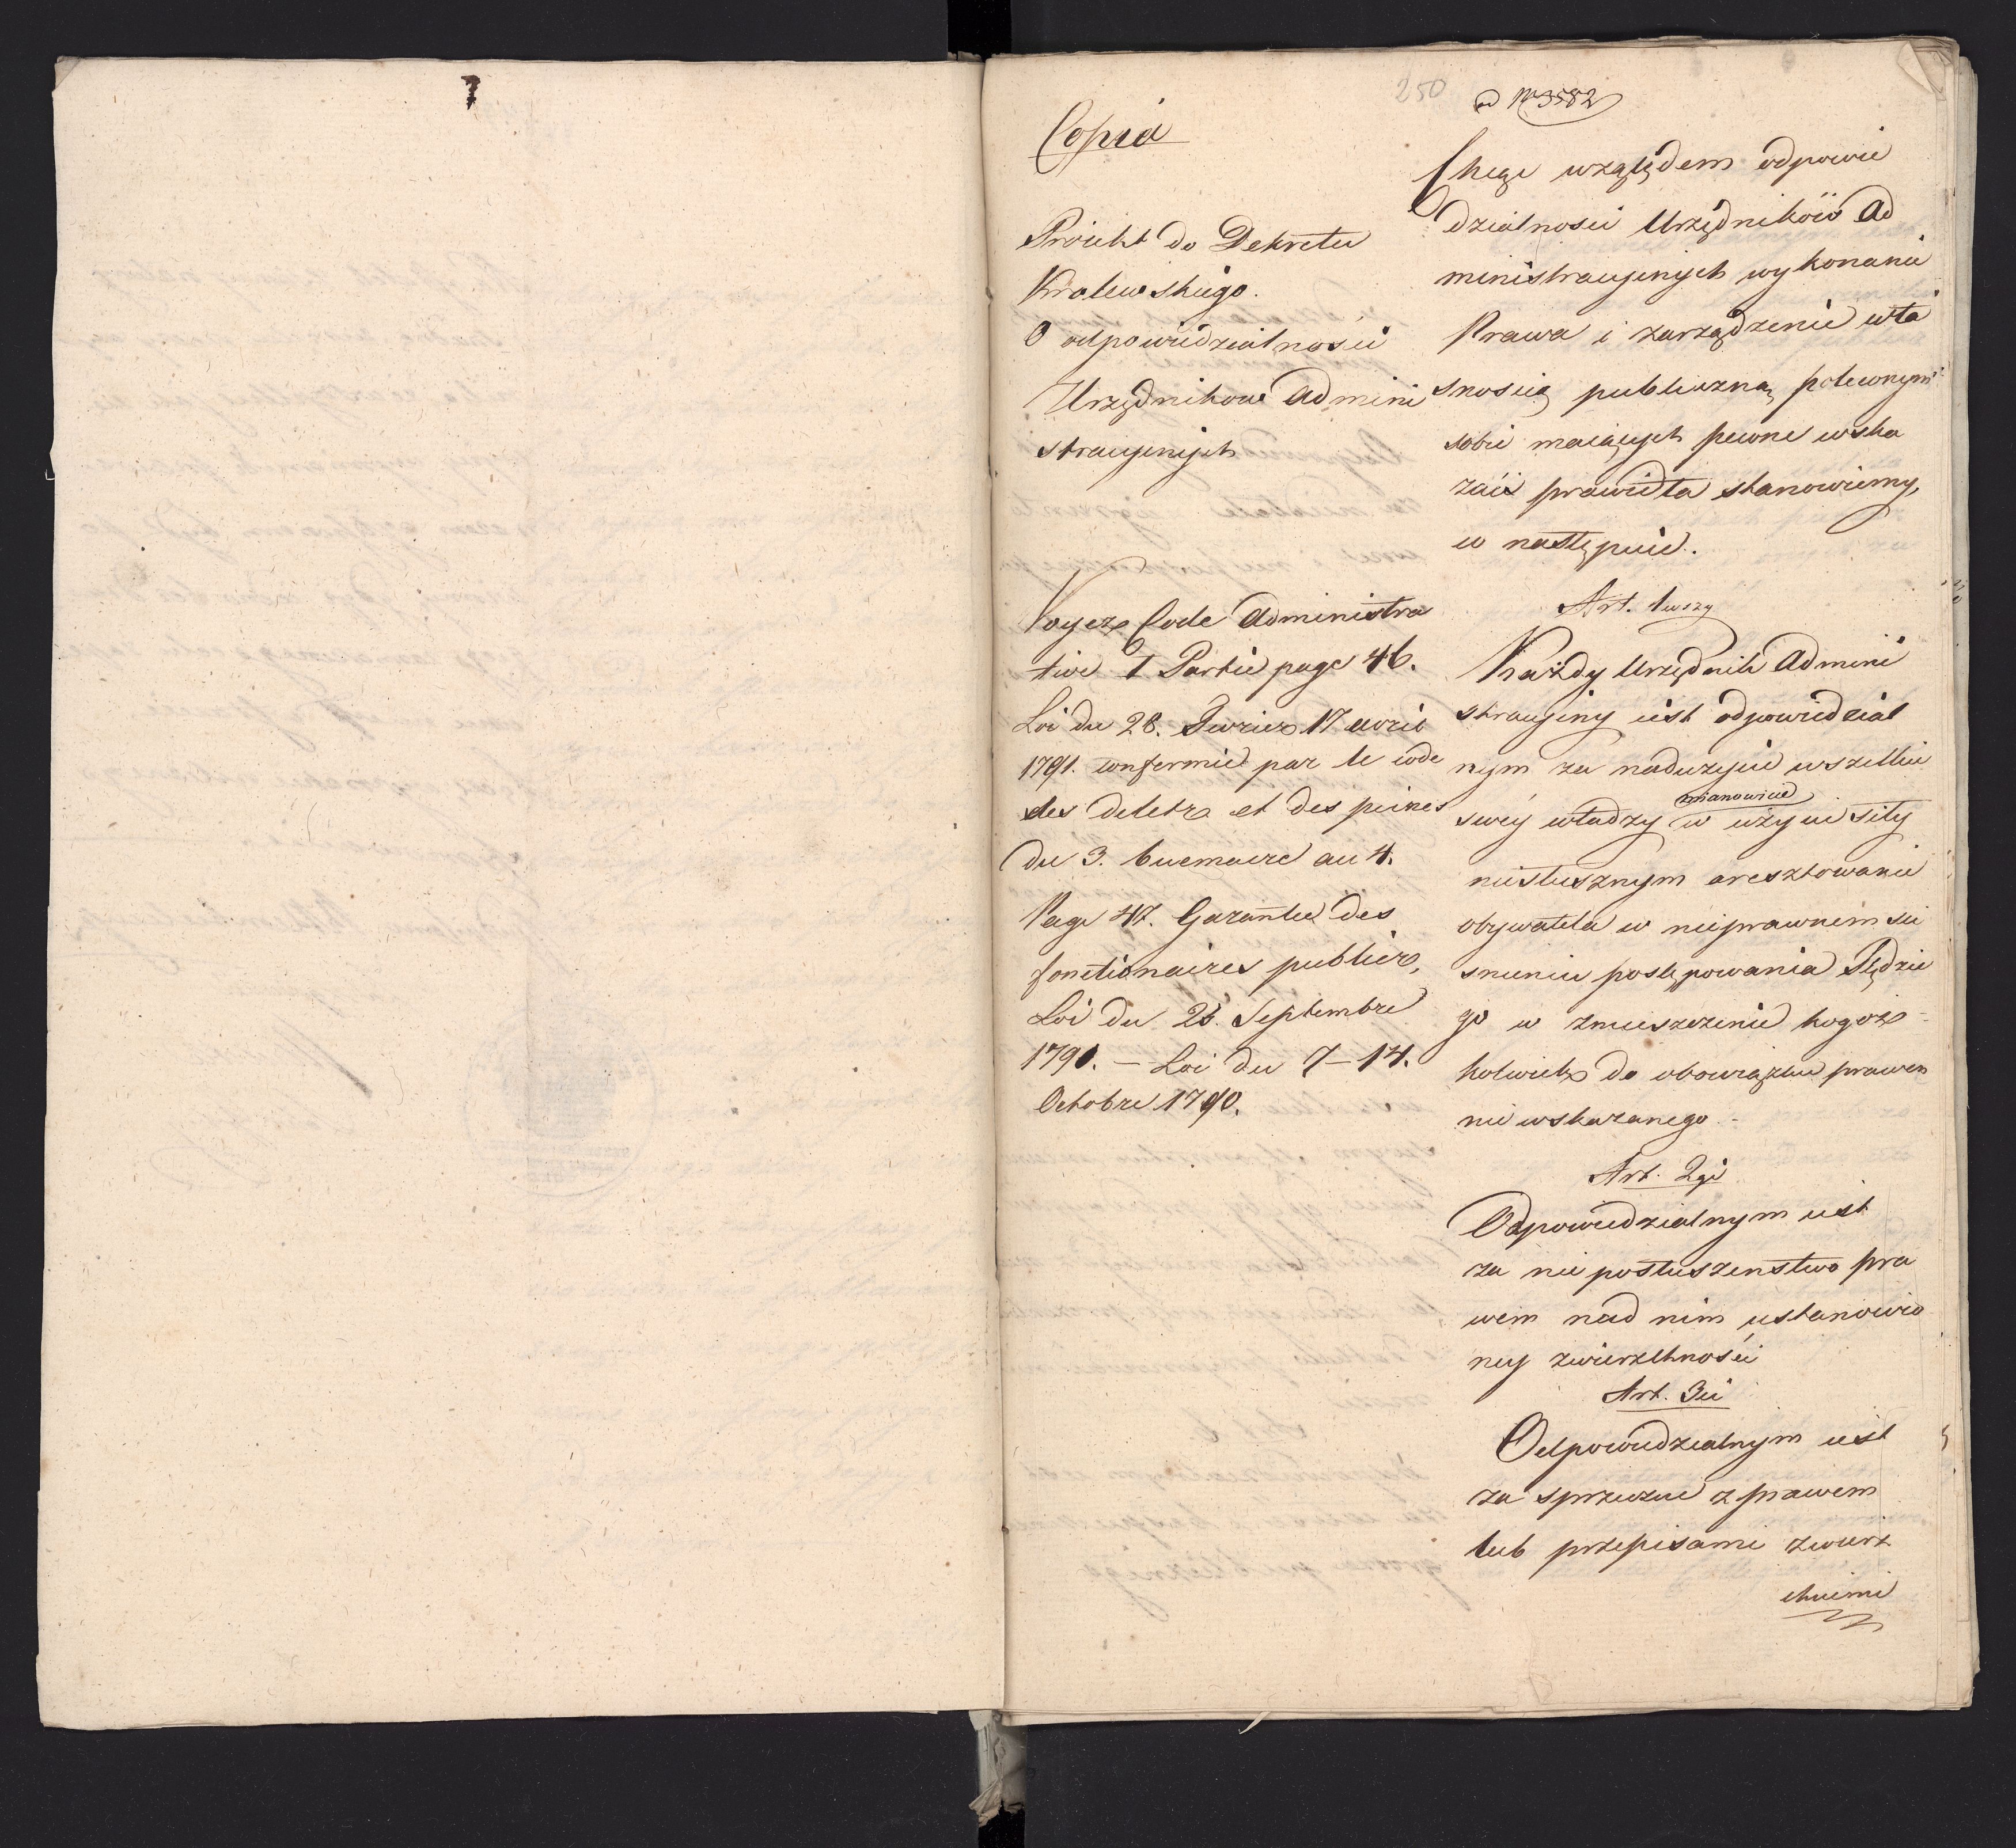 250
ad Nº 3582
Copia
Proiekt do Dekretu
Krolewskiego.
O odpowiedzialnosci
Urzędnikow Admini
stracyinych
Voyez Code Administra
tive I Partie page 46.
Loi du 28. Fevrier 17 avril
1791. confermie par le code
des delets et des peines
du 3. brumaire an 4.
Page 47. Garantie des
fonctionaires publics,
Loi du 25. Septembre
1791. – Loi du 7–14.
Octobre 1790.
Chcąc względem odpowie
dzialnosci Urzędnikow Ad
ministracyinych wykonanie
Prawa i zarządzenie wła
snoscią publiczną poleconym
sobie maiących pewne wska
zać prawidła stanowiemy,
co następuie.
Art. 1wszy
Każdy Urzędnik Admini
stracyiny iest odpowiedzial
nym za nadużycie wszelkie
mianowicie
swéy władzy w użyciu siły
niesłusznym aresztowaniu
obywatela w nieprawnem sci
snieniu postępowania Sędzie
go w zmuszeniu kogoż-
kolwiek do obowiązku prawem
nie wskazanego.-
Art. 2gi
Odpowiedzialnym iest
za nie posłuszenstwo pra
wem nad nim ustanowio
ney zwierzchności
Art. 3ci
Odpowiedzialnym iest
za sprzeczne z prawem
lub przepisami zwierz
chniemi